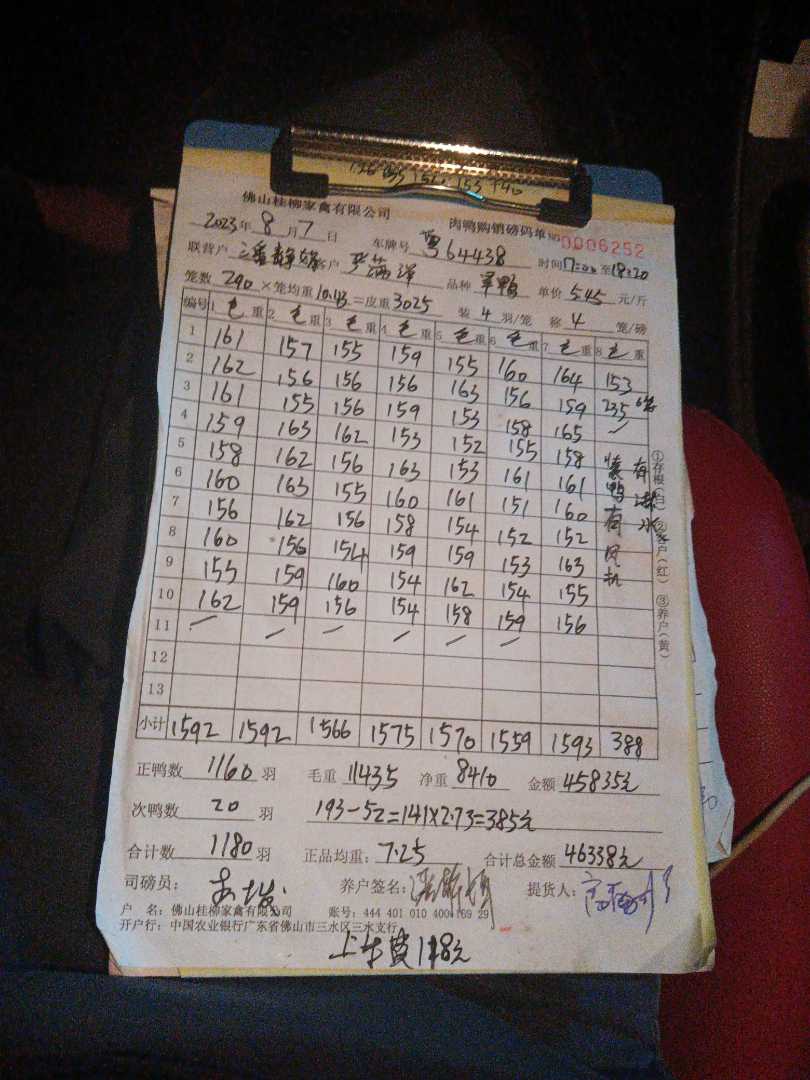 佛山桂柳家禽有限公司 肉鸭购销磅码单 No 0006252
2023年 8 月 7 日 车牌号 粤64438 时间17:00至18:20
联营户 潘静嫦 客户 品种 单价 5.45 元/斤
笼数 290 ×笼均重10.43=皮重3025 装 4 羽/笼 称 4 笼/磅
编号 1 毛重 2 毛重 3 毛重 4 毛重 5 毛重 6 毛重 7 毛重 8 毛重
1 161 157 155 159 155 160 164 153
2 162 156 156 156 163 156 159 235 6笼
3 161 155 156 159 153 158 165 /
4 159 163 162 153 152 155 158
5 158 162 156 163 153 161 161
6 160 163 155 160 161 151 160
7 156 162 156 158 154 152 152
8 160 156 154 159 159 153 163
9 155 159 160 154 162 154 155
10 162 159 156 154 158 159 156
11
12
13
装鸭有风机
有淋水
小计 1592 1592 1566 1575 1570 1559 1593 388
①存根(白) ②客户(红) ③养户(黄)
正鸭数 1160 羽 毛重 11435 净重 8410 金额 45835元
次鸭数 20 羽 193-52=141×2.73=385元
合计数 1180 羽 正品均重: 7.25 合计总金额 46338元
司磅员: 养户签名: 提货人:
户 名: 佛山桂柳家禽有限公司 账号: 444 401 010 400 169 29
开户行: 中国农业银行广东省佛山市三水区三水支行
上车费118元